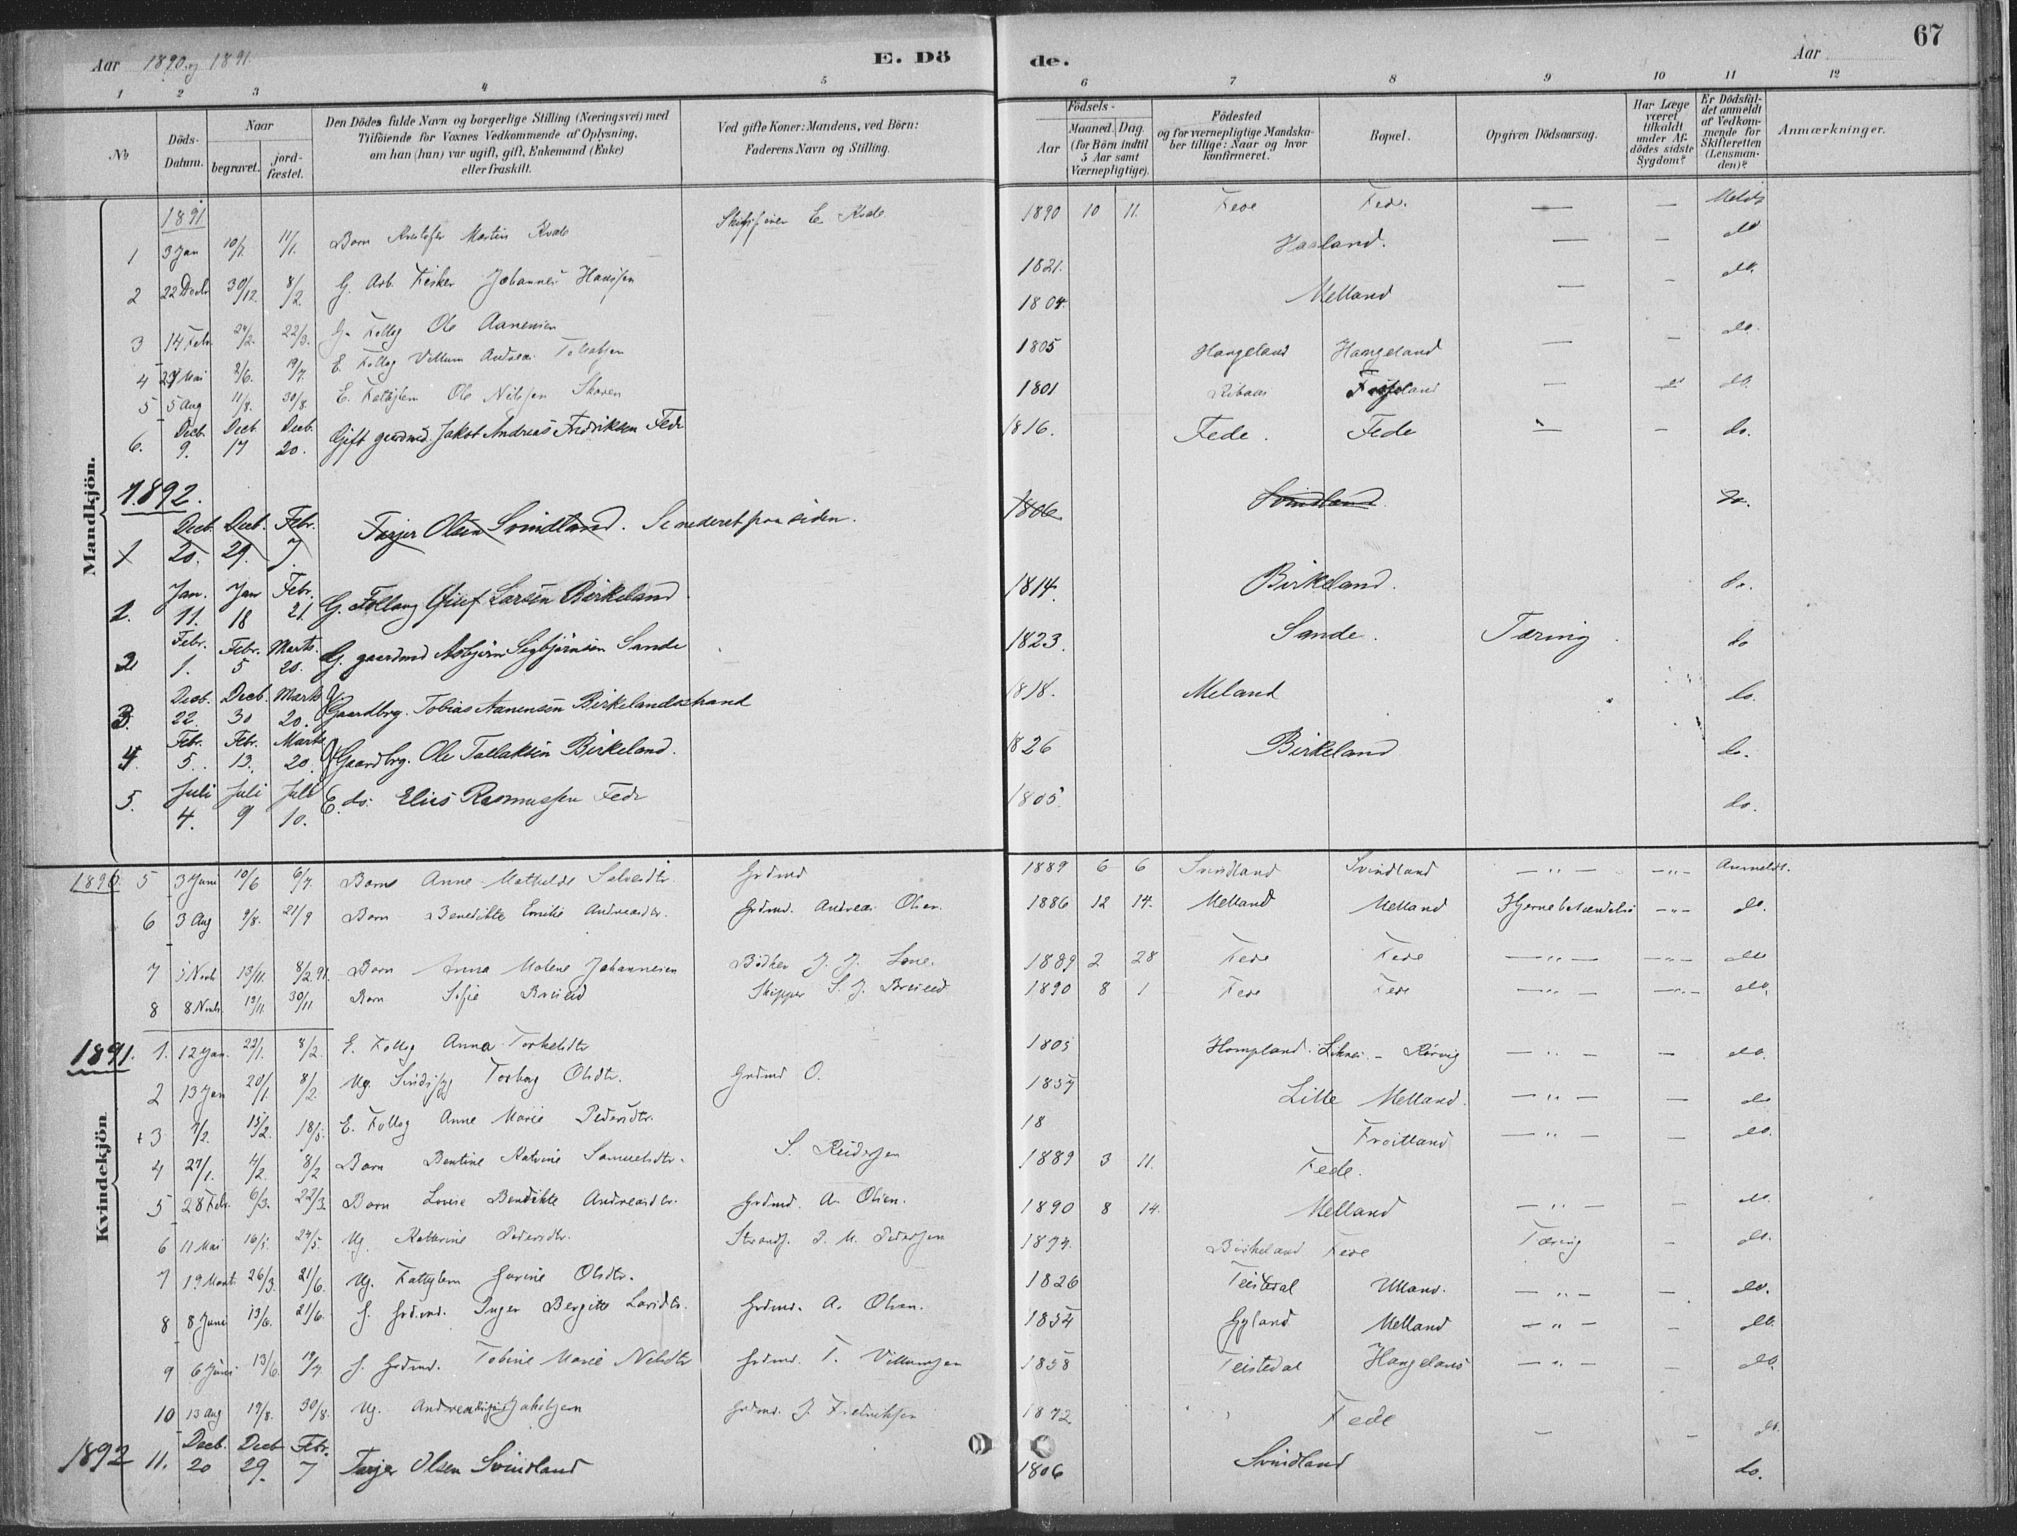 Aar 1890 og 1891.
E. Dö
de.
Aar
67
1 2 3 4 5 6 7 8 9 10 11 12
No
Döds-Datum.
Naar
begravet.
jord-fæstet.
Den Dödes fulde Navn og borgerlige Stilling (Næringsvei) med
Tilföiende for Voxnes Vedkommende af Oplysning,
om han (hun) var ugift, gift, Enkemand (Enke)
eller fraskilt.
Ved gifte Koner: Mandens, ved Börn:
Faderens Navn og Stilling.
Födsels-
Aar
Maaned. Dag.
(for Börn indtil
5 Aar samt
Værnepligtige).
Födested
og for værnepligtige Mandska-
ber tillige: Naar og hvor
konfirmeret.
Bopæl.
Opgiven Dödsaarsag.
Har Læge
været
tilkaldt
under Af-
dödes sidste
Sygdom?
Er Dödsfal-
det anmeldt
af Vedkom-
mende for
Skifteretten
(Lensman-
den)?
Anmærkninger.
Mandkjön.
1891
1 3 Jan 10/1. 11/1. Barn Kristofer Martin Kvale 1890 10 11. Fede Fede — — Meldt
2 22 Decbr 30/12. 8/2 G. Arb. Fisker Johannes Hansen 1821. Haaland. — — do
3 14 Febr 24/2. 22/3. G. Follog Ole Aanensen 1804. Melland — — do.
4 27 Mai 2/6. 19/7. E. Follog Villum Andreas Tollaksen 1805 Haugeland Haugeland — — do.
5 5 Aug 11/8. 30/8. E. Ole Nilssen 1801 — do.
6. Decb. 9. Decb 17 Decb. 20. Gift gaardmd. Jakob Andreas Fredriksen Fede 1816. Fede. Fede — — do.
1892.
1 Decb. 20. Decb. 29. Febr. 7. Tarjer Olsen Svindland. Se nederst paa siden. 1806 Svindland do.
1. Jan. 11. Jan 18 Febr. 21. G. Follaug Larsen Birkeland 1814. Birkeland. do.
2 Febr. 1. Febr. 5 Marts. 20. G. gaardmd Asbjörn Sigbjörnsen Sande 1823. Sande. Tæring. do
3. Decb. 22. Decb. 30 Marts 20. G Gaardbrg. Tobias Aanensen Birkelandsstrand 1818. Meland do.
4. Febr. 5. Febr. 13. Marts 20. G Gaardbrg. Ole Tallaksen Birkeland. 1826 Birkeland do.
5. Juli 4. Juli 9 Juli 10. E. do: Elias Rasmussen Fede 1805. do.
Kvindekjön
1890. 5 3 Juni 10/6 6/7. Barn Anne Mathilde Grdmd 1889 6 6 Svindland Svindland — „ — — „ — Anmeldt.
6 3 Aug 9/8. 21/9 Barn Benedikte Emilie Andreasdtr. Grdmd. Andreas Olsen. 1886 12 14. Melland Melland Hjernebetændelse — „ — do.
7 13/11. 8/2 91. Barn Anna Malene Johannesen Bödker J. J. 1889 2 28 Fede Fede — „ — — „ — do
8 8 Novb. 19/11. 30/11 Barn Sofie Breseid Skipper S. J. Breseid 1890 8 1 Fede Fede — „ — — „ — do.
1891. 1. 12 Jan. 22/1. 8/2. E. Follog Anna Torkelsdtr 1805 Hompland. — „ — — do.
2 13 Jan 20/1. 8/2. Ug. Torborg Olsdtr. Grdmd O. 1857 Lille Melland. — „ — — do
+3 7/2. 15/2. 18/5. E. Follog Anne Marie Pedersdtr. 18 Froitland — „ — — do.
4 27/1. 4/2. 8/2 Barn Bentine Katrine Samuelsdtr. S. 1889 3 11. Fede.
5 28 Febr. 6/3. 22/3. Barn Louise Bendikte Andreasdtr. Grdmd. A. Olsen. 1890 8 14. Melland — „ — — do.
6 11 Mai 16/5. 24/5. Ug. Katherine Pedersdtr. Strands. P. M. Pedersen 1874. Birkeland Fede Tæring — do.
7 19 Marts 26/3. 21/6. Ug. Olsdtr. 1826 Teistedal — „ — — do.
8 8 Juni 13/6. 21/6. G. Grdmd. Inger Bergitte Larsdtr. Grdmd. A. Olsen. 1854 Gyland Melland — „ — — do.
9 6 Juni 13/6. 19/7. G. Grdmd. Tobine Marie Nilsdtr Grdmd. T. Villumsen 1858 Teistedal Haugeland — „ — — do.
10 13 Aug 19/8. 30/8. Ug. Jakobsen Grdmd. J. Fredriksen 1872 Fede — — do.
1892 11. Decb. 20 Decb 29. Febr. 7 Tarjer Olsen Svindland 1806 Svindland do.